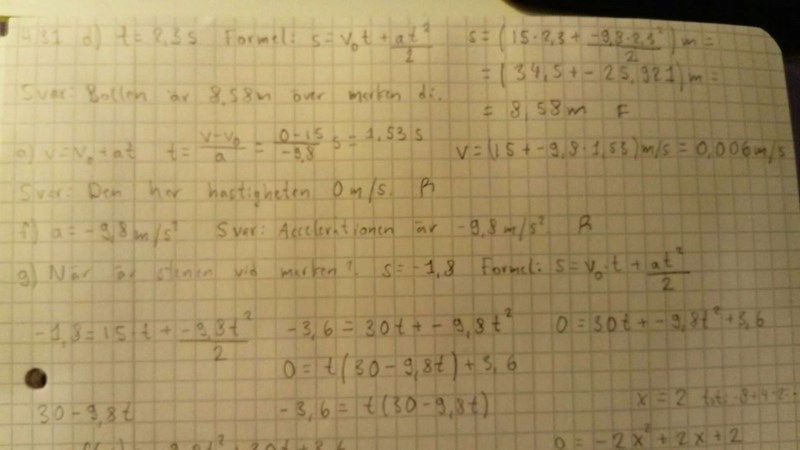 431 d) t = 2,3 s Formel: s = v₀t + at²/2 s = (15·2,3 + -9,8·2,3²/2) m =
= (34,5 + - 25,921) m =
Svar: Bollen är 8,58 m över marken då. = 8,58 m F
e) v = v₀ + at t = v-v₀/a = 0-15/-9,8 s = 1,53 s v = (15 + -9,8·1,53) m/s = 0,006 m/s
Svar: Den har hastigheten 0 m/s. R
f) a = -9,8 m/s² Svar: Accelerationen är -9,8 m/s² R
g) När är stenen vid marken? s = -1,8 Formel: s = v₀·t + at²/2
-1,8 = 15·t + -9,8t²/2 -3,6 = 30t + - 9,8t² 0 = 30t + -9,8t² + 3,6
0 = t(30 - 9,8t) + 3,6
30 - 9,8t -3,6 = t(30 - 9,8t) x = 2
0 = -2x² + 2x + 2